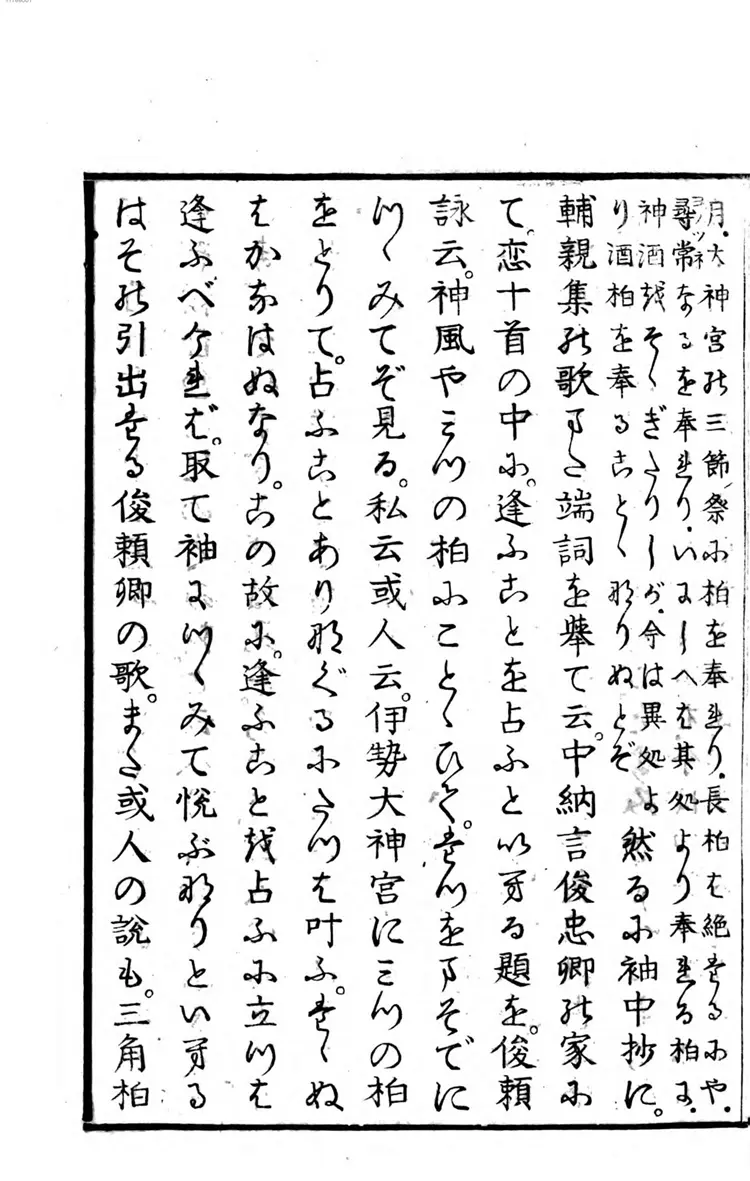 月．大神宮の三節祭に柏を奉れり．長柏は絶たるにや．
尋常なるを奉れり．いにしへは其処より奉れる柏に．
神酒をそゝぎたりしが．今は異処よ
り酒柏を奉ることゝなりぬとぞ
然るに袖中抄に。
輔親集の歌また端詞を挙て云。中納言俊忠卿の家に
て。恋十首の中に。逢ふことを占ふといへる題を。俊頼
詠云。神風やみつの柏にことゝひて。たつをまそでに
つゝみてぞ見る。私云或人云。伊勢大神宮にみつの柏
をとりて。占ふことありなぐるにたつは叶ふ。たゝぬ
はかなはぬなり。この故に。逢ふことを占ふに立つは
逢ふべければ。取て袖につゝみて悦ぶなりといへる
はその引出たる俊頼卿の歌。また或人の説も。三角柏